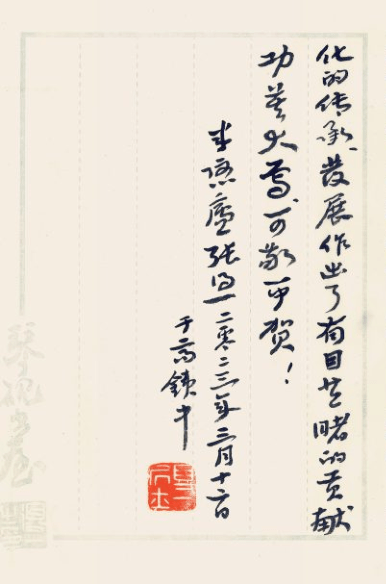 化的传承、发展作出了有目共睹的贡献
功莫大焉、可敬可贺!
半隐庐张一二零二三年三月十六日
于高铁中